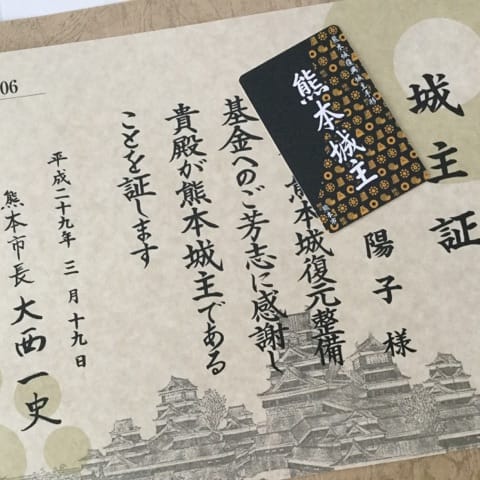 06
城主証
陽子様
本城復元整備
基金へのご芳志に感謝し
貴殿が熊本城主である
ことを証します
平成二十九年 三月十九日
熊本市長 大西一史
熊本城復興城主手形
熊本城主
熊本市